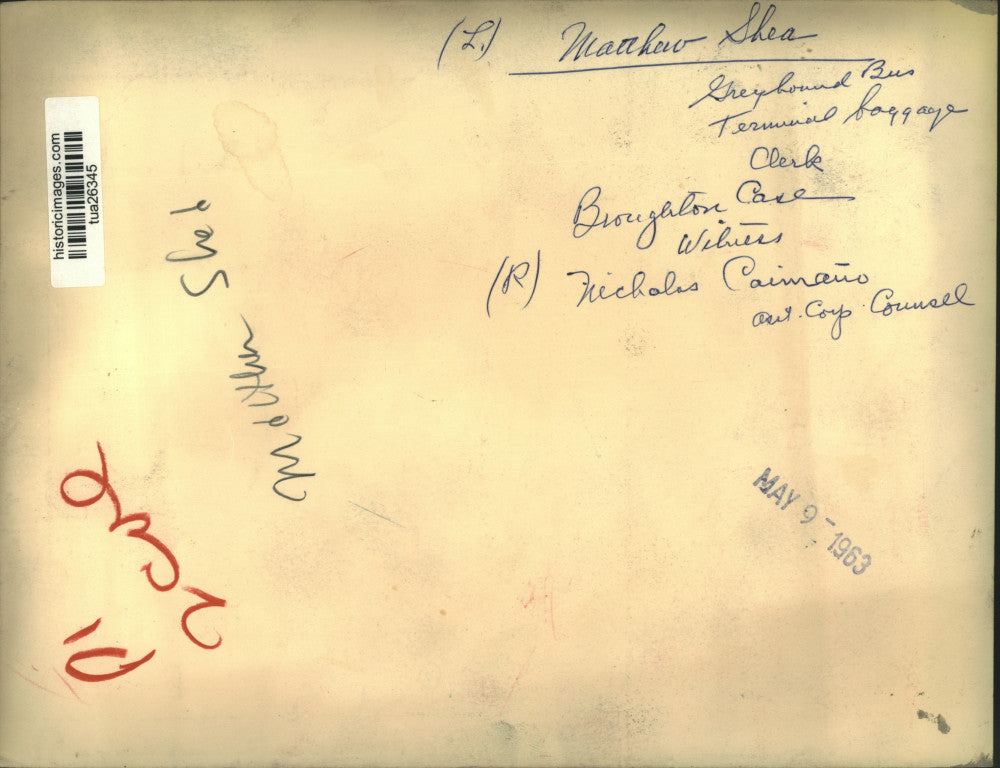 (L.) Matthew Shea
Greyhound Bus
Terminal baggage
Clerk
Broughton Case
Witness
(R) Nicholas Caimano
ass't. Corp. Counsel
historicimages.com
tua26345
Matthew Shea
MAY 9 - 1963